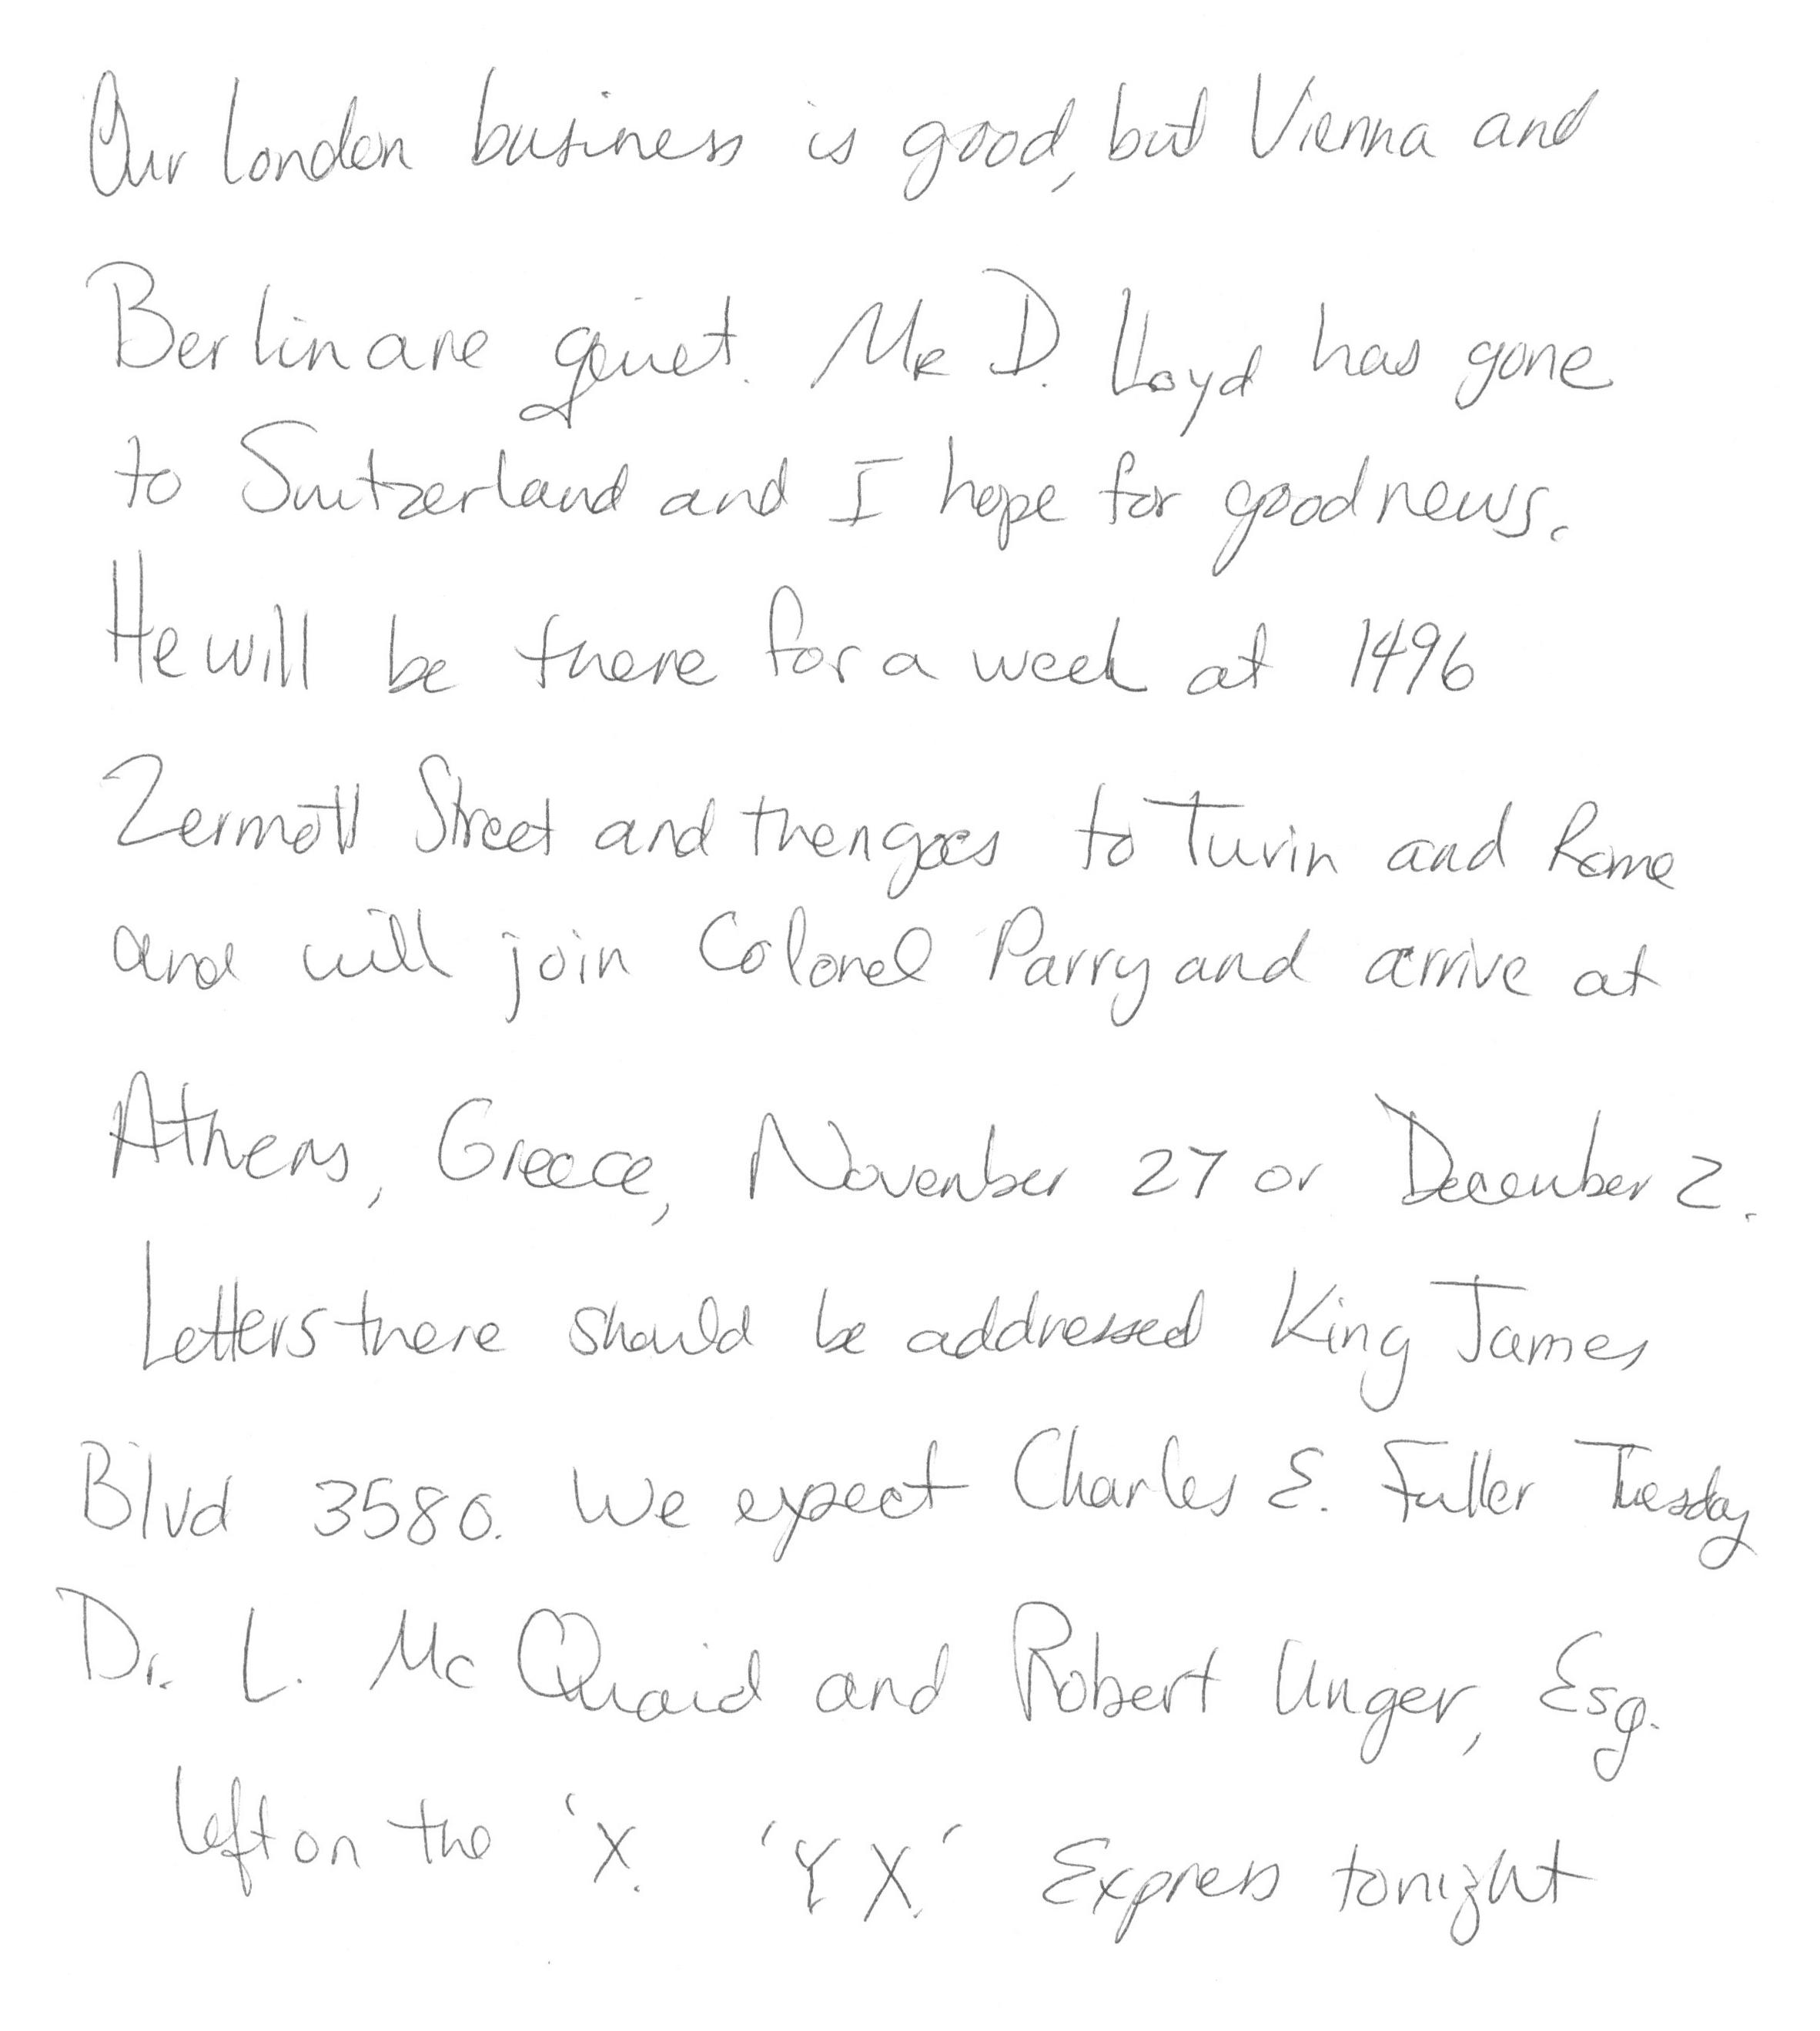 Our London business is good, but Vienna and
Berlin are quiet. Mr D. Lloyd has gone
to Switzerland and I hope for good news.
He will be there for a week at 1496
Zermott Street and then goes to Turin and Rome
and will join Colonel Parry and arrive at
Athens, Greece, November 27 or December 2.
Letters there should be addressed King James
Blvd 3580. We expect Charles E. Fuller Tuesday
Dr. L. Mc Quaid and Robert Unger, Esq.
left on the 'X. 'YX.' Express tonight